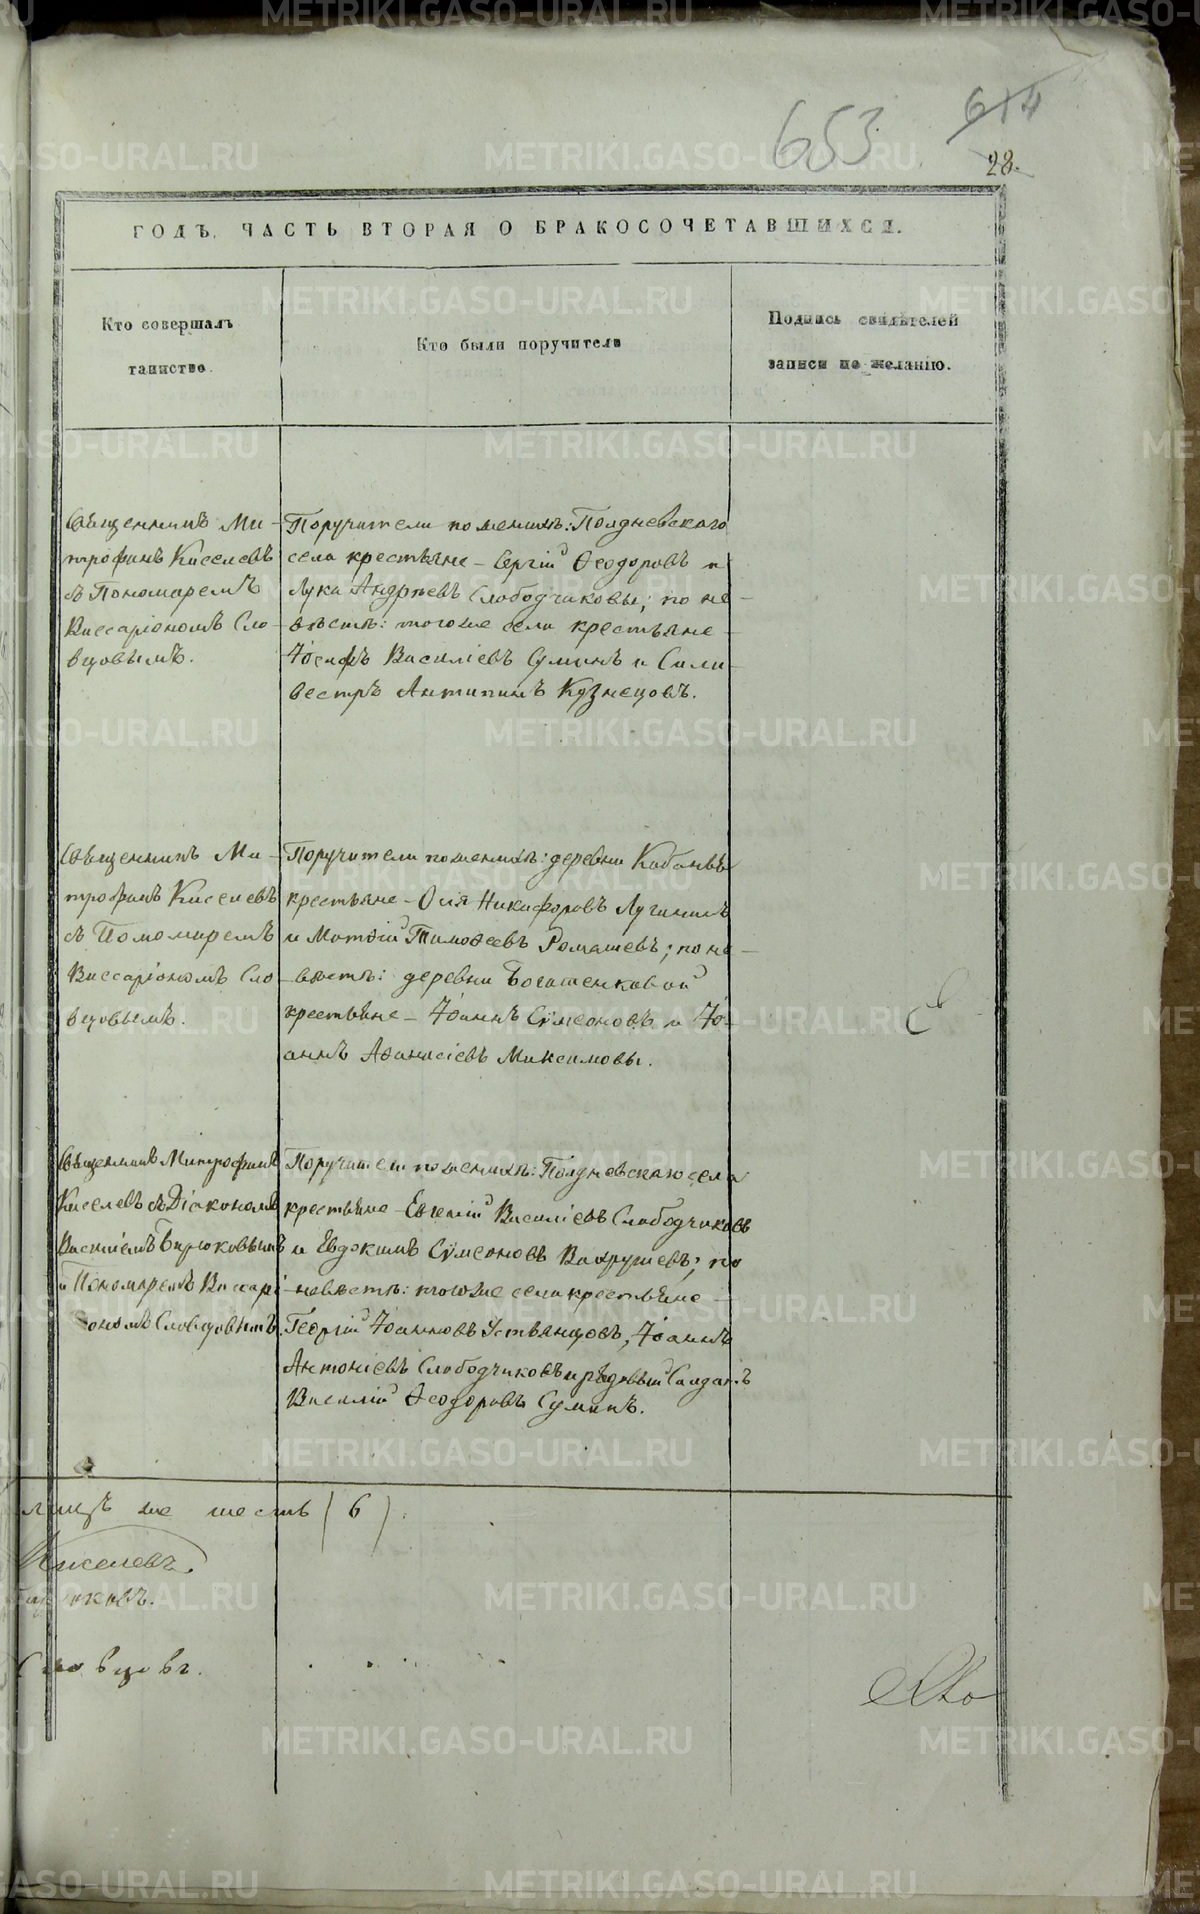 653
614
28.
ГОДЪ, ЧАСТЬ ВТОРАЯ О БРАКОСОЧЕТАВШИХСЯ.
Кто совершалъ
таинство.
Кто были поручители
Подпись свидѣтелей
записи по желанію.
Священникъ Ми-
трофанъ Киселевъ
съ Пономаремъ
Виссаріономъ Сло-
вцовымъ.
Поручители по женихѣ: Полдневскаго
села крестьяне – Сергій Ѳеодоровъ и
Лука Андреевъ Слободчиковы; по не-
вѣстѣ: тогоже села крестьяне –
Іосифъ Василіевъ Суминъ и Сили-
вестръ Антипинъ Кузнецовъ.
Священникъ Ми-
трофанъ Киселевъ
съ Пономаремъ
Виссаріономъ Сло-
вцовымъ.
Поручители по женихѣ: деревни
крестьяне – Осія Никифоровъ Лугининъ
и Матѳій Тимоѳеевъ Ромашевъ; по не-
вѣстѣ: деревни Богатенковой
крестьяне – Іоаннъ Сѵмеоновъ и Іо-
аннъ Аѳанасіевъ Максимовы.
Священникъ Митрофанъ
Киселевъ съ Діакономъ
Василіемъ Бирюковымъ
и Пономаремъ Виссарі-
ономъ Словцовымъ.
Поручители по женихѣ: Полдневскаго села
крестьяне – Евгеній Василіевъ Слободчиковъ
и Евдокимъ Сѵмеоновъ Вахрушевъ; по
невѣстѣ: тогоже села крестьяне –
Георгій Іоанновъ Устьянцовъ, Іоаннъ
Антоніевъ Слободчиковъ и рядовый Салдатъ
Василій Ѳеодоровъ Суминъ.
лицъ же шесть (6).
Киселевъ.
Словцовъ.
METRIKI.GASO-URAL.RU